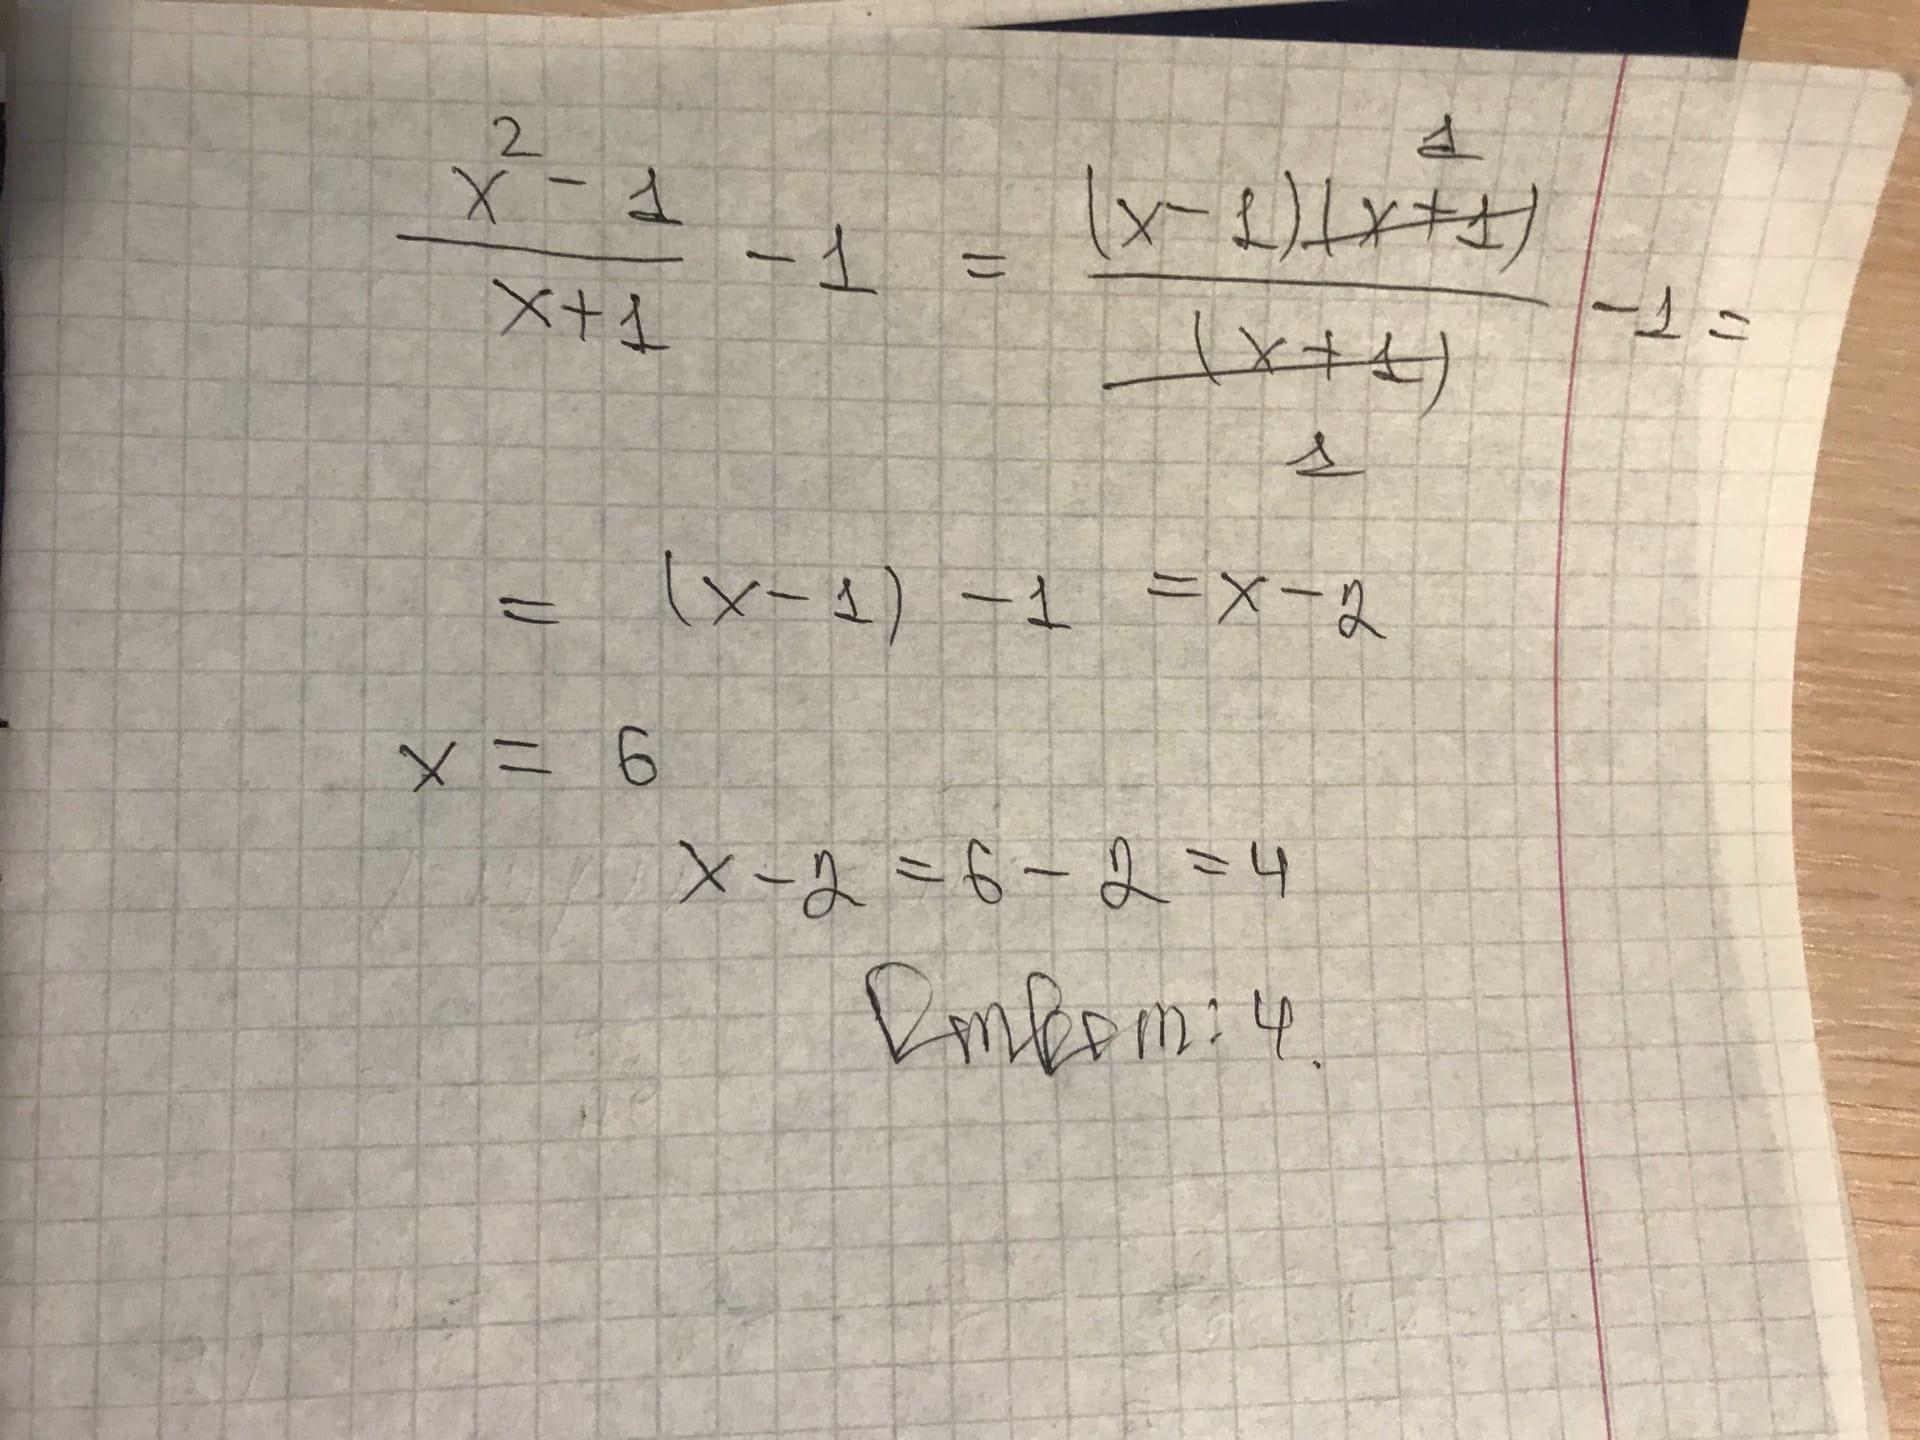 (x² - 1)/(x+1) - 1 = ((x-1)(x+1))/(x+1) - 1 =
= (x-1) - 1 = x - 2
x = 6
x - 2 = 6 - 2 = 4
Ответ: 4.